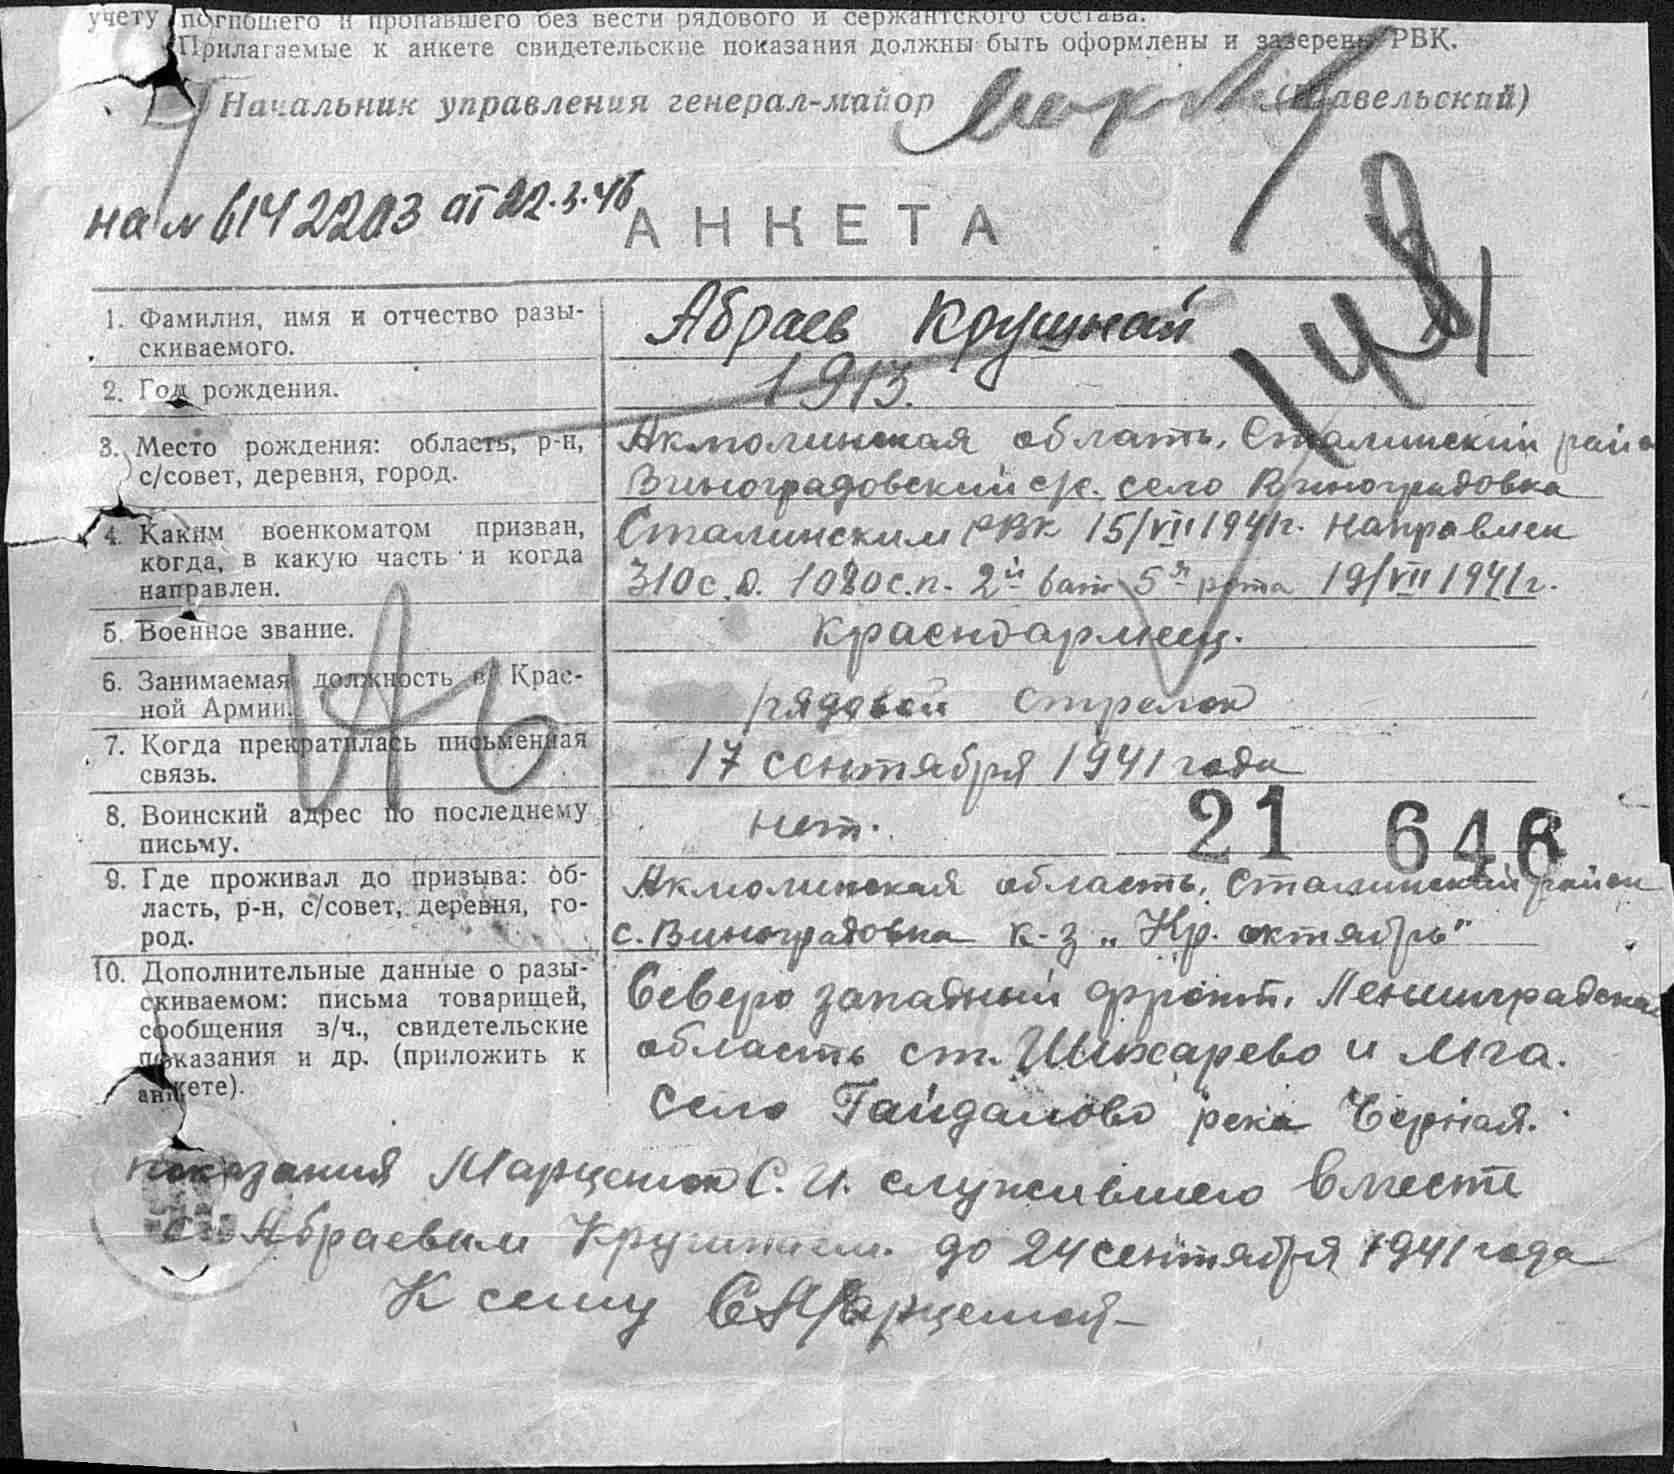 учету погибшего и пропавшего без вести рядового и сержантского состава.
Прилагаемые к анкете свидетельские показания должны быть оформлены и заверены РВК.
Начальник управления генерал-майор (Шавельский)
на № 6142203 от 22.3.46
АНКЕТА
148
1. Фамилия, имя и отчество разы-
скиваемого.
Абраев Крушнай
2. Год рождения.
1913.
3. Место рождения: область, р-н,
с/совет, деревня, город.
Акмолинская область, Сталинский район
Виноградовский с/с. село Виноградовка
4. Каким военкоматом призван,
когда, в какую часть и когда
направлен.
Сталинским РВК 15/VII 1941г. Направлен
310 с.д. 1080 с.п. 2й бат 5я рота 19/VII 1941г.
5. Военное звание.
Красноармеец.
6. Занимаемая должность в Крас-
ной Армии.
рядовой стрелок
7. Когда прекратилась письменная
связь.
17 сентября 1941 года
8. Воинский адрес по последнему
письму.
нет.
21 646
9. Где проживал до призыва: об-
ласть, р-н, с/совет, деревня, го-
род.
Акмолинская область, Сталинский район
с. Виноградовка к-з „Кр. октябрь"
10. Дополнительные данные о разы-
скиваемом: письма товарищей,
сообщения в/ч., свидетельские
показания и др. (приложить к
анкете).
Северо западный фронт, Ленинградская
область ст. Шихарево и Мга.
село Гайдалово река Черная.
показания Марценюк С. И. служившего вместе
с Абраевым до 24 сентября 1941 года
К сему